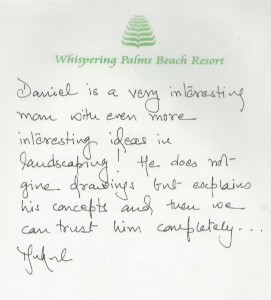 Whispering Palms Beach Resort
Daniel is a very interesting
man with even more
interesting ideas in
landscaping! He does not
give drawings but explains
his concepts and then we
can trust him completely...